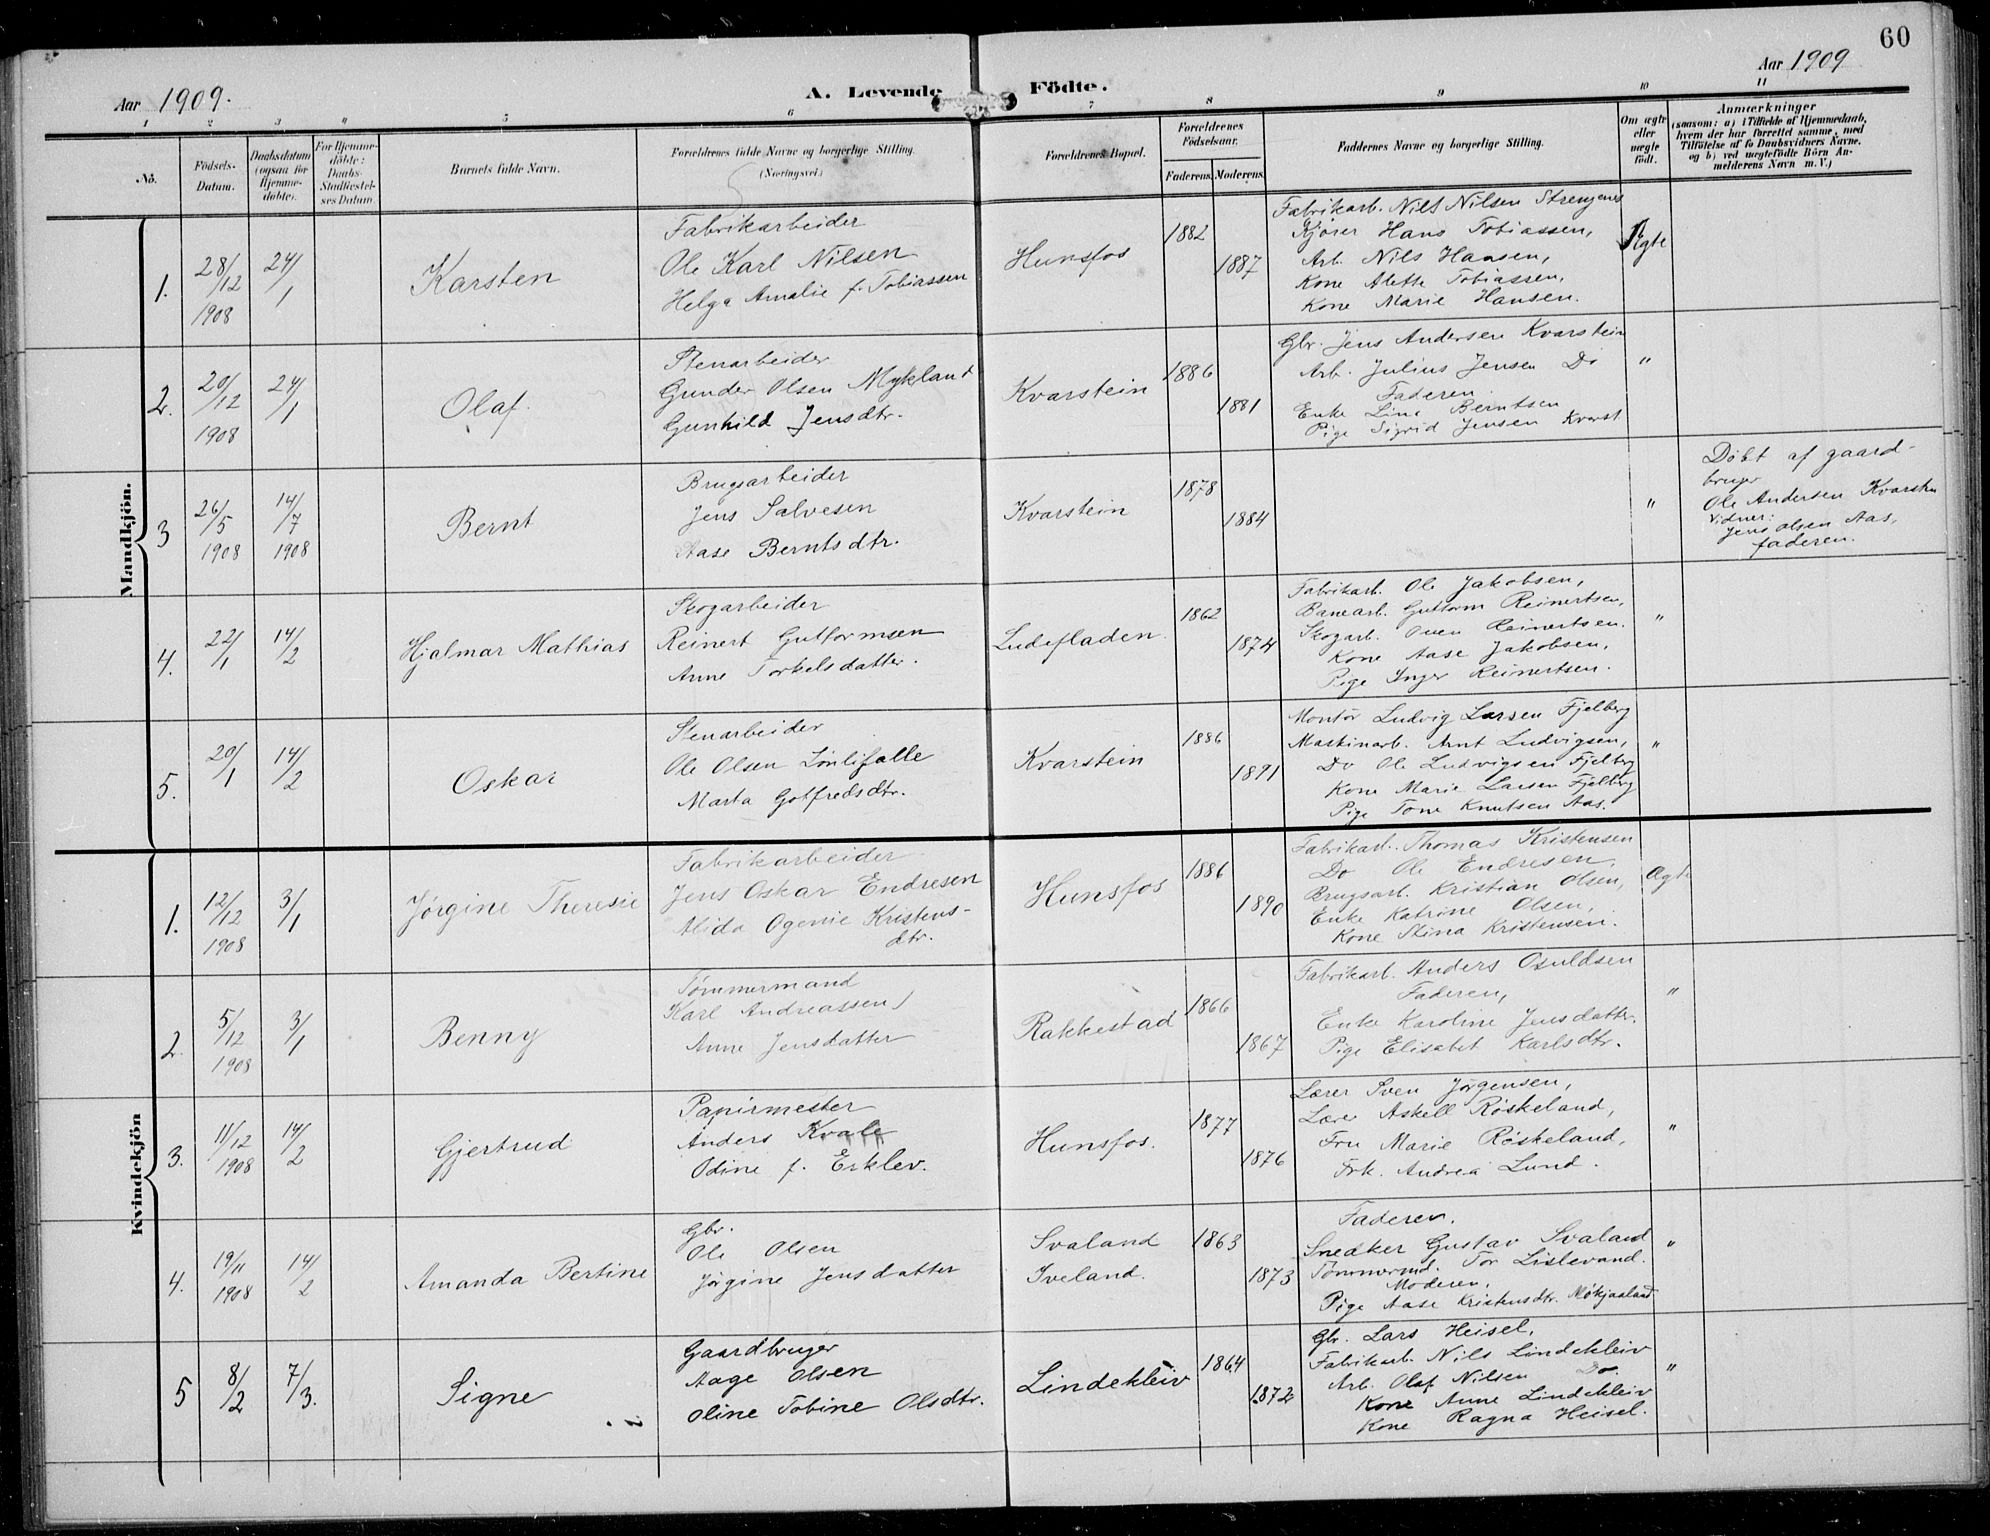 60
Aar 1909.
A. Levende Födte.
Aar 1909
1 2 3 4 5 6 7 8 9 10 11
No.
Födsels-Datum.
Daabsdatum (ogsaa for Hjemmedøbte).
For Hjemmedöbte: Daabs-Stadfæstelses Datum.
Barnets fulde Navn.
Forældrenes fulde Navne og borgerlige Stilling. (Næringsvei.)
Forældrenes Bopæl.
Forældrenes Födselsaar.
Faderens. Moderens.
Faddernes Navne og borgerlige Stilling.
Om ægte eller uægte födt.
Anmærkninger
(saasom: a) i Tilfælde af Hjemmedaab, hvem der har forrettet samme, med Tilföielse af to Daabsvidners Navne, og b) ved uægtefödte Börn Anmelderens Navn m. V.)
Mandkjön.
1. 28/12 1908 24/1
Karsten
Fabrikarbeider
Ole Karl Nilsen
Helga Amalie f. Tobiassen
Hunsfos
1882
1887
Fabrikarb. Nils Nilsen Strengenes
Kjører Hans Tobiassen,
Arb. Nils Hansen,
Kone Alette Tobiassen,
Kone Marie Hansen.
Ægte
2. 20/12 1908 24/1
Olaf.
Stenarbeider
Gunder Olsen Mykland
Gunhild Jensdtr.
Kvarstein
1886
1881
Gbr. Jens Andersen Kvarstein
Arb. Julius Jensen Do
Faderen.
Enke Line Berntsen
Pige Sigrid Jensen Kvarst
"
3 26/5 1908 14/7 1908
Bernt
Brugsarbeider
Jens Salvesen
Aase Berntsdtr.
Kvarstein
1878
1884
"
Døbt af gaard-
bruger
Ole Andersen Kvarstein
Vidner:
Jens Olsen Aas,
faderen.
4. 22/1 14/2
Hjalmar Mathias
Skogarbeider
Reinert Guttormsen
Anne Torkelsdatter.
Ludefladen.
1862
1874
Fabrikarb. Ole Jakobsen,
Banearb. Guttorm Reinertsen,
Skogarb. Oven Reinertsen.
Kone Aase Jakobsen,
Pige Inger Reinertsen.
"
5. 20/1 14/2
Oskar
Stenarbeider
Ole Olsen Lønlifalle
Marta Gotfredsdtr.
Kvarstein
1886
1891
Montør Ludvig Larsen Fjelberg
Maskinarb. Arnt Ludvigsen,
Do Ole Ludvigsen Fjelberg
Kone Marie Larsen Fjelberg
Pige Tone Knutsen Aas.
"
Kvindekjön
1. 12/12 1908 3/1
Jørgine Theresie
Fabrikarbeider
Jens Oskar Endresen
Alida Ogenie Kristens-
dtr.
Hunsfos
1886
1890
Fabrikarb. Thomas Kristensen
Do Ole Endresen,
Brugsarb. Kristian Olsen,
Enke Katrine Olsen,
Kone Stina Kristensen.
Ægte
2. 5/12 1908 3/1
Benny
Tømmermand
Karl Andreassen
Anne Jensdatter
Rakkestad
1866
1867
Fabrikarb. Anders Osuldsen
Faderen,
Enke Karoline Jensdatter.
Pige Elisabet Karlsdtr.
"
3. 11/12 1908 14/2
Gjertrud
Papirmester
Anders Kvale
Odine f. Esklev.
Hunsfos.
1877
1876
Lærer Sven Jørgensen,
Lærer Askell Røskeland,
Fru Marie Røskeland,
Frk. Andrea Lund.
"
4. 19/11 1908 14/2
Amanda Bertine
Gbr.
Ole Olsen
Jørgine Jensdatter
Svaland
Iveland.
1863
1873
Faderen.
Snedker Gustav Svaland
Tømmermd. Tor Lislevand.
Moderen.
Pige Aase Kristensdtr. Møkjaaland
"
5 8/2 7/3.
Signe
Gaardbruger
Aage Olsen
Oline Tobine Olsdtr.
Lindekleiv
1864
1872
Gbr. Lars Heisel,
Fabrikarb. Nils Lindekleiv
Arb. Olaf Nilsen Do.
Kone Anne Lindekleiv
Kone Ragna Heisel.
"